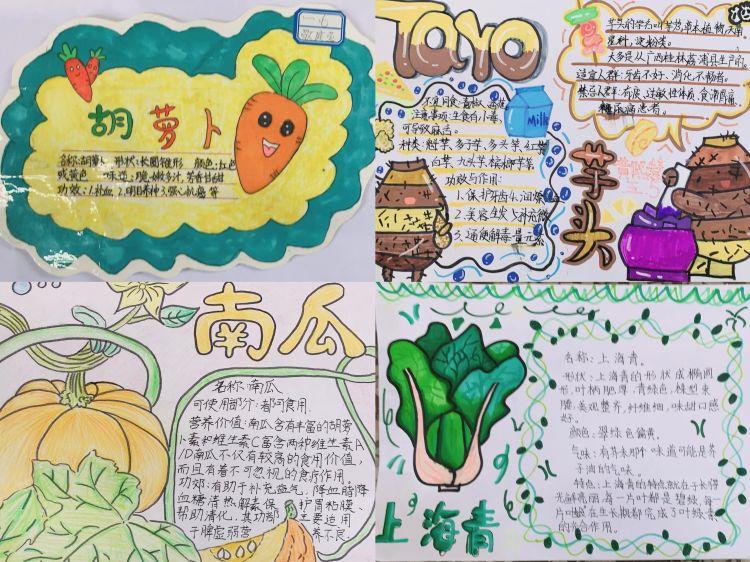 胡萝卜
名称:胡萝卜 形状:长圆锥形 颜色:红色
或黄色 味道:脆嫩多汁,芳香甘甜
功效:1.补血 2.明目养神 3.强心抗癌 等
TARO
芋头的学名叫芋艿,草本植物,天南
星科,淀粉类。
大多是从广西桂林荔浦县生产的。
适宜人群:牙齿不好、消化不畅者。
禁忌人群:有痰、过敏性体质、食滞胃痛、
糖尿病患者。
Milk
可导致麻舌。
种类:魁芋、多子芋、多头芋、红芽
白芋、九头芋、槟榔芋等
功效与作用:
1.保护牙齿
2.美容生发
3.通便解毒
芋头
南瓜
名称:南瓜
可使用部分:都可食用.
营养价值:南瓜含有丰富的胡萝
卜素和维生素C富含两种维生素A
/D南瓜不仅有较高的食用价值,
而且有着不可忽视的食疗作用.
功效:有助于补充益气,降血脂降
血糖清热解毒保护胃粘膜、
帮助消化,其功效主要适用
于脾虚弱营养不良.
上海青
名称:上海青。
形状:上海青的形状成椭圆
形,叶柄肥厚,青绿色,株型束
腰,美观整齐,纤维细,味甜口感
好。
颜色:翠绿色偏黄。
气味:有芥末那个味道可能是芥
子油的气味。
特点:上海青的特点就在于长得
光鲜亮丽,每一片叶都是碧绿,每一
片叶都在生长期都完成了叶绿素
的光合作用。